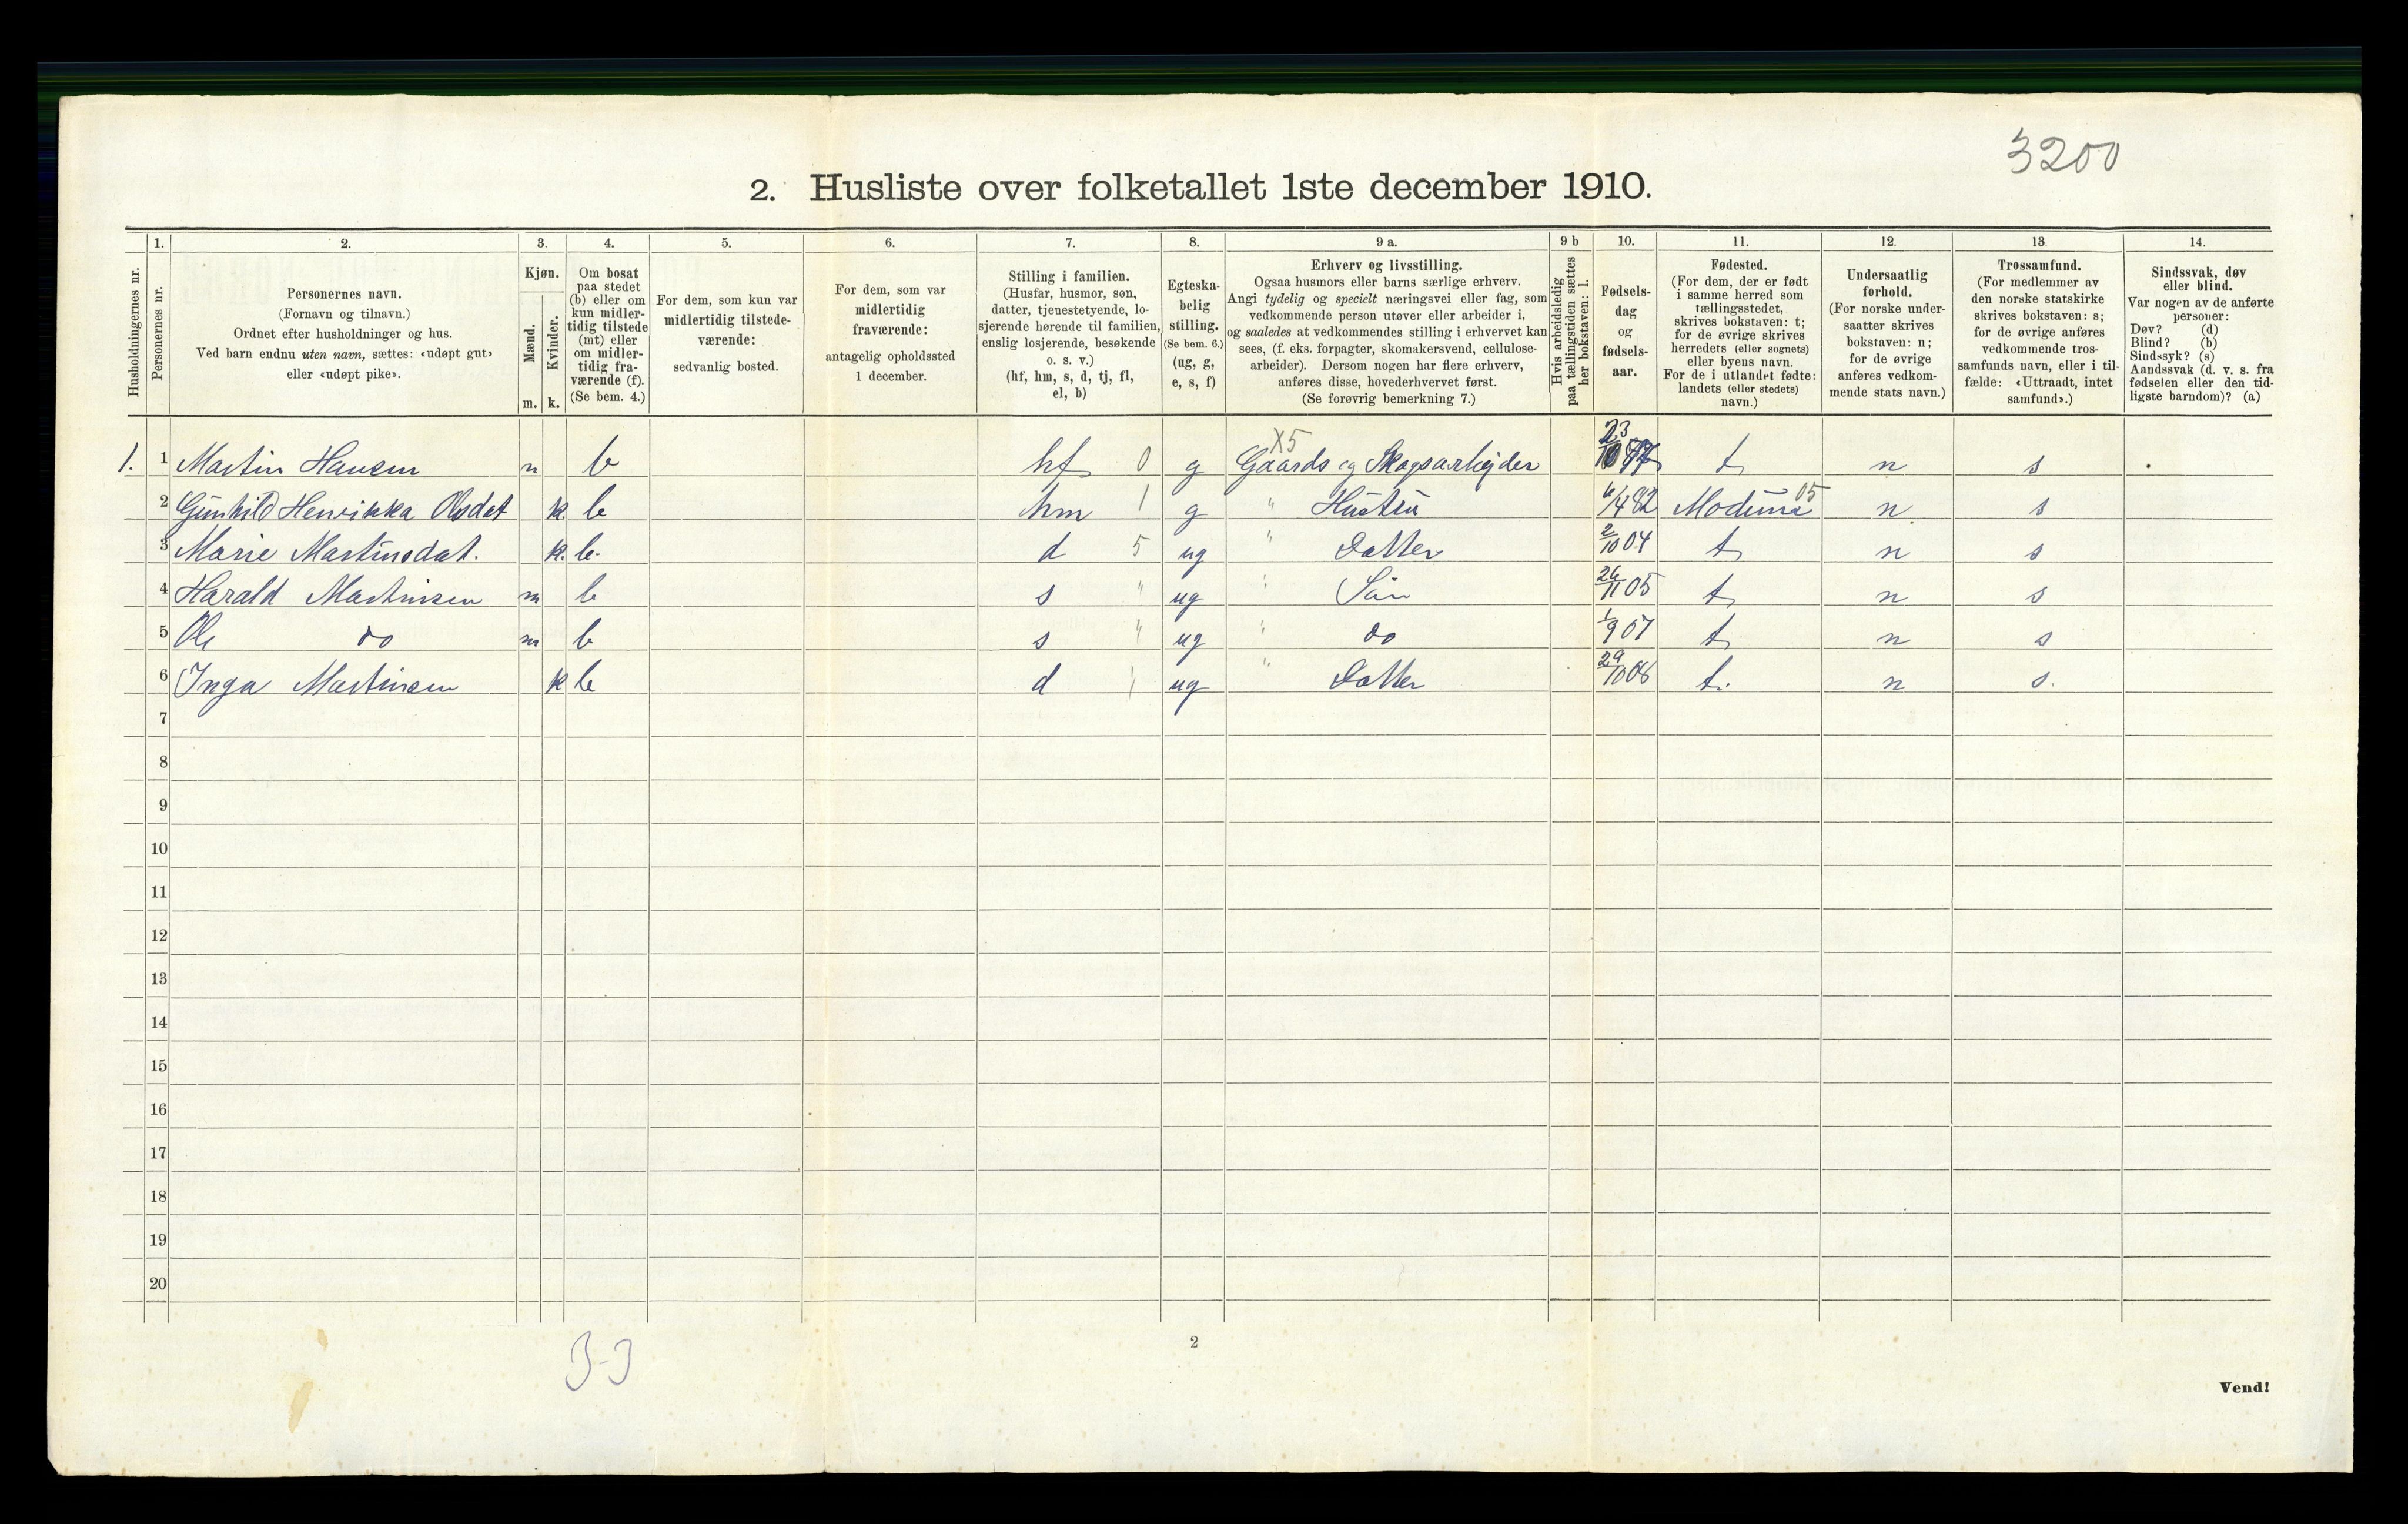 3200
2. Husliste over folketallet 1ste december 1910.
Husholdningernes nr.
1. Personernes nr.
2. Personernes navn.
(Fornavn og tilnavn.)
Ordnet efter husholdninger og hus.
Ved barn endnu uten navn, sættes: «udøpt gut»
eller «udøpt pike».
3. Kjøn.
Mænd. Kvinder.
m. k.
4. Om bosat
paa stedet
(b) eller om
kun midler-
tidig tilstede
(mt) eller
om midler-
tidig fra-
værende (f).
(Se bem. 4.)
5. For dem, som kun var
midlertidig tilstede-
værende:
sedvanlig bosted.
6. For dem, som var
midlertidig
fraværende:
antagelig opholdssted
1 december.
7. Stilling i familien.
(Husfar, husmor, søn,
datter, tjenestetyende, lo-
sjerende hørende til familien,
enslig losjerende, besøkende
o. s. v.)
(hf, hm, s, d, tj, fl,
el, b)
8. Egteska-
belig
stilling.
(Se bem. 6.)
(ug, g,
e, s, f)
9 a. Erhverv og livsstilling.
Ogsaa husmors eller barns særlige erhverv.
Angi tydelig og specielt næringsvei eller fag, som
vedkommende person utøver eller arbeider i,
og saaledes at vedkommendes stilling i erhvervet kan
sees, (f. eks. forpagter, skomakersvend, cellulose-
arbeider). Dersom nogen har flere erhverv,
anføres disse, hovederhvervet først.
(Se forøvrig bemerkning 7.)
9 b Hvis arbeidsledig
paa tællingstiden sættes
her bokstaven: l.
10. Fødsels-
dag
og
fødsels-
aar.
11. Fødested.
(For dem, der er født
i samme herred som
tællingsstedet,
skrives bokstaven: t;
for de øvrige skrives
herredets (eller sognets)
eller byens navn.
For de i utlandet fødte:
landets (eller stedets)
navn.)
12. Undersaatlig
forhold.
(For norske under-
saatter skrives
bokstaven: n;
for de øvrige
anføres vedkom-
mende stats navn.)
13. Trossamfund.
(For medlemmer av
den norske statskirke
skrives bokstaven: s;
for de øvrige anføres
vedkommende tros-
samfunds navn, eller i til-
fælde: «Uttraadt, intet
samfund».)
14. Sindssvak, døv
eller blind.
Var nogen av de anførte
personer:
Døv? (d)
Blind? (b)
Sindssyk? (s)
Aandssvak (d. v. s. fra
fødselen eller den tid-
ligste barndom)? (a)
X5
1. 1 Martin Hansen m b hf 0 g Gaards og Skogsarbejder 23/10 t n s
2 Gunhild Henrikka Olsdat k. b hm 1 g " Hustru 6/4 82 Modum 05 n s
3 Marie Martinsdat. k. b. d 5 ug " Datter 2/10 04 t n s
4 Harald Martinsen m b s " ug " Sön 26/11 05 t n s
5 Ole do m b s " ug " do 1/9 07 t n s
6 Inga Martinsen k b d " ug " Datter 29/10 08 t. n s.
7
8
9
10
11
12
13
14
15
16
17
18
19
20
3-3
2
Vend!